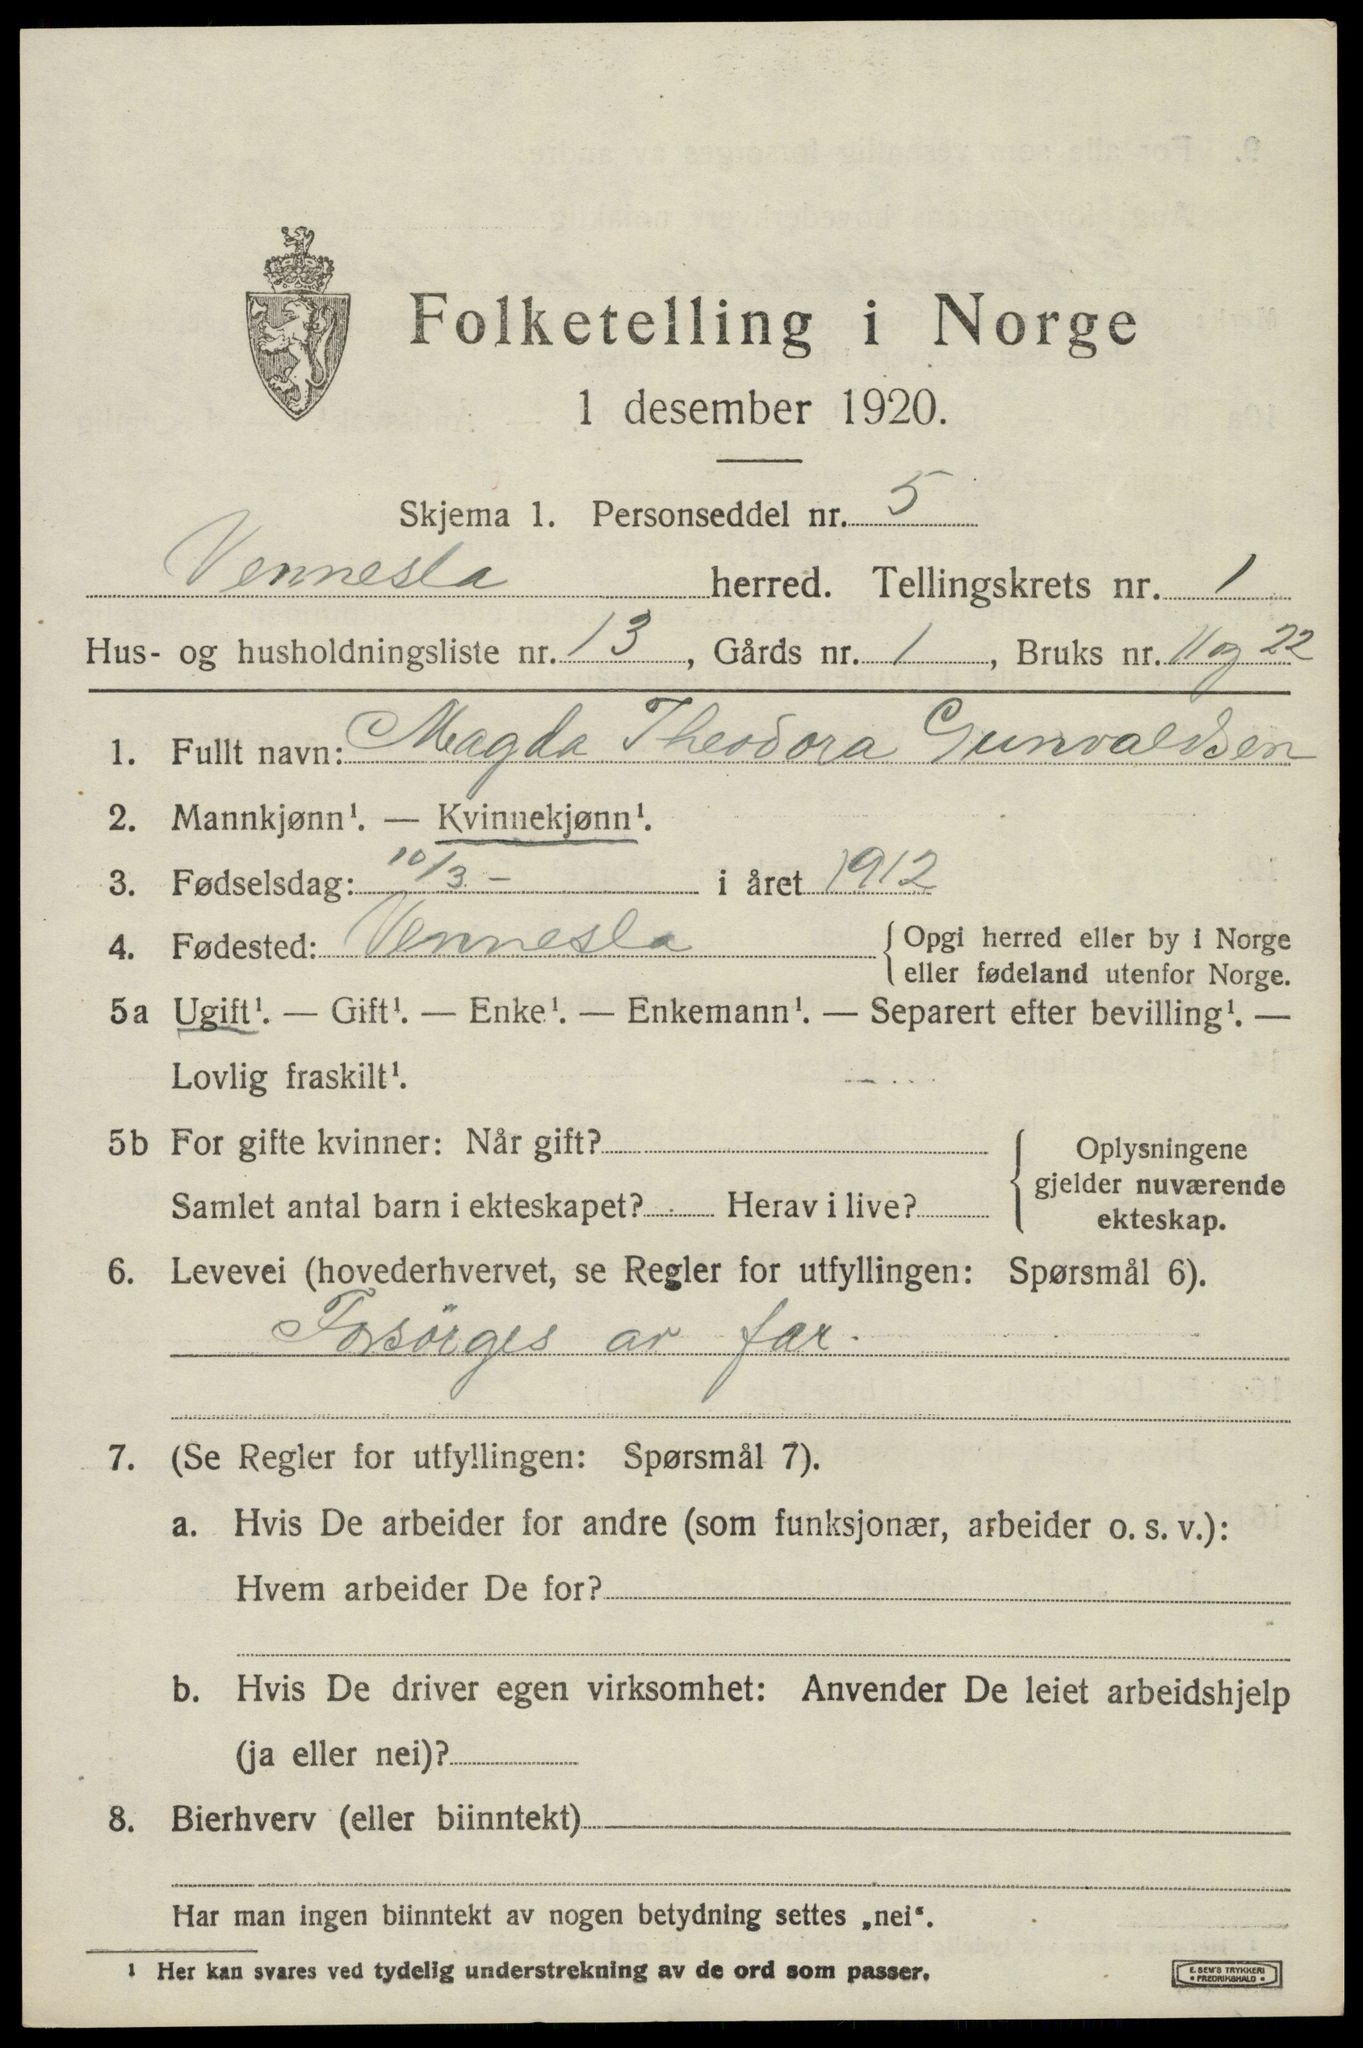 Folketelling i Norge
1 desember 1920.
Skjema 1. Personseddel nr. 5
Vennesla herred. Tellingskrets nr. 1
Hus- og husholdningsliste nr. 13, Gårds nr. 1, Bruks nr. 11 og 22
1. Fullt navn: Magda Theodora Gunvaldsen
2. Mannkjønn¹. — Kvinnekjønn¹.
3. Fødselsdag: 10/3 – i året 1912
4. Fødested: Vennesla { Opgi herred eller by i Norge
eller fødeland utenfor Norge.
5a Ugift¹. — Gift¹. — Enke¹. — Enkemann¹. — Separert efter bevilling¹. —
Lovlig fraskilt¹.
5b For gifte kvinner: Når gift?
Samlet antal barn i ekteskapet? Herav i live?
{ Oplysningene
gjelder nuværende
ekteskap.
6. Levevei (hovederhvervet, se Regler for utfyllingen: Spørsmål 6).
Forsörges av far.
7. (Se Regler for utfyllingen: Spørsmål 7).
a. Hvis De arbeider for andre (som funksjonær, arbeider o. s. v.):
Hvem arbeider De for?
b. Hvis De driver egen virksomhet: Anvender De leiet arbeidshjelp
(ja eller nei)?
8. Bierhverv (eller biinntekt)
Har man ingen biinntekt av nogen betydning settes „nei“.
¹ Her kan svares ved tydelig understrekning av de ord som passer.
E. SEM'S TRYKKERI
• FREDRIKSHALD •